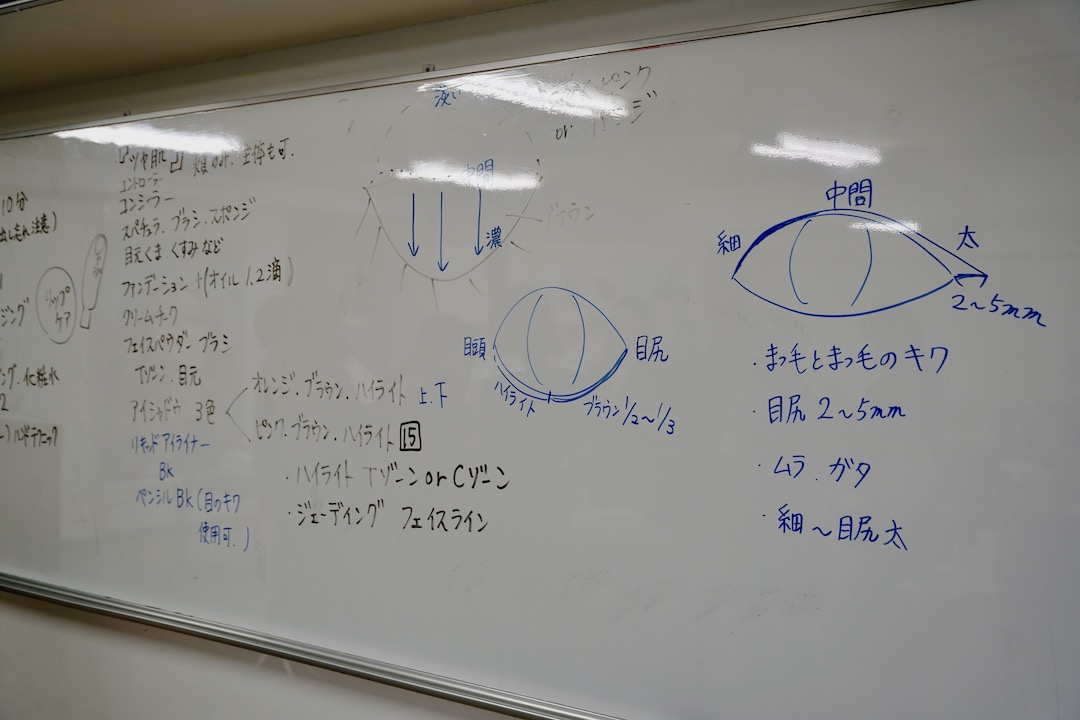 10分
出し忘れ注意)
ジング
リップ
ケア
化粧水
2
ツヤ肌
主体も可.
コントローラー
コンシーラー
スパチュラ. ブラシ. スポンジ
目元くま くすみ など
ファンデーション +(オイル 1.2滴)
クリームチーク
フェイスパウダー ブラシ
Tゾーン. 目元
アイシャドウ 3色
オレンジ. ブラウン. ハイライト 上.下
ピンク. ブラウン. ハイライト 15
リキッドアイライナー
BK
ペンシル BK (目のキワ
使用可. )
・ハイライト Tゾーン or Cゾーン
・ジェーディング フェイスライン
淡い
ピンク
or
中間
濃
ブラウン
目頭
目尻
ハイライト
ブラウン 1/2〜1/3
中間
細
太
2〜5mm
・まつ毛とまつ毛のキワ
・目尻 2〜5mm
・ムラ. ガタ
・細〜目尻太